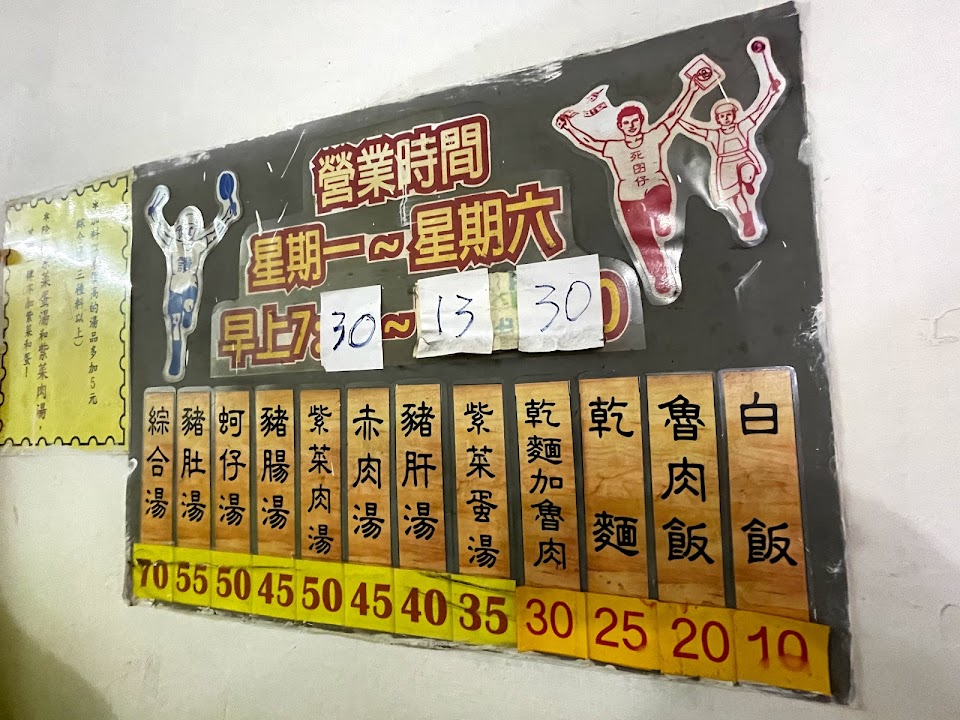 營業時間
星期一~星期六
早上7:30~13 30
死囝仔
綜合湯
豬肚湯
蚵仔湯
豬腸湯
紫菜肉湯
赤肉湯
豬肝湯
紫菜蛋湯
乾麵加魯肉
乾麵
魯肉飯
白飯
70 55 50 45 50 45 40 35 30 25 20 10
的湯品多加5元
三種料以上)
菜蛋湯和紫菜肉湯,
加紫菜和蛋!